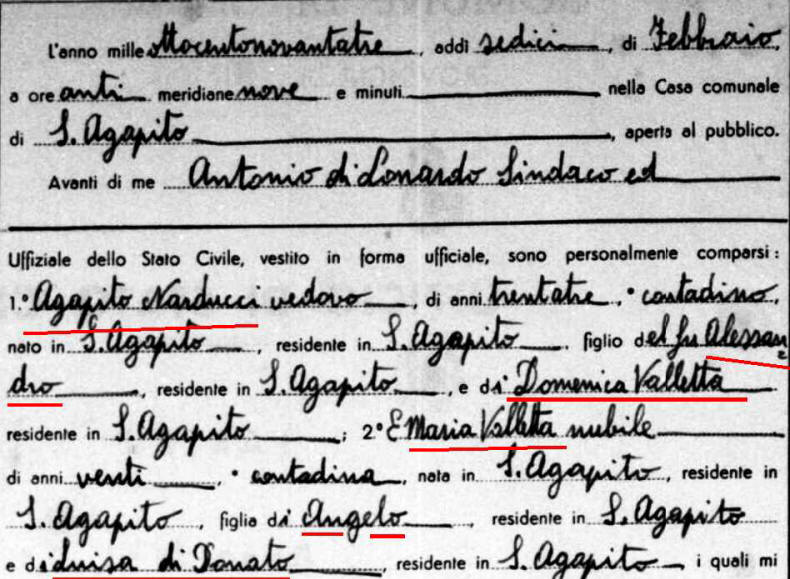 L'anno mille ottocentonovantatre, addì sedici, di Febbraio,
a ore anti meridiane nove e minuti nella Casa comunale
di S. Agapito, aperta al pubblico.
Avanti di me Antonio di Lonardo Sindaco ed
Uffiziale dello Stato Civile, vestito in forma ufficiale, sono personalmente comparsi:
1.° Agapito Narducci vedovo, di anni trentatre, contadino,
nato in S. Agapito, residente in S. Agapito, figlio del fu Alessan
dro, residente in S. Agapito, e di Domenica Valletta
residente in S. Agapito; 2° E Maria Valletta nubile
di anni venti, contadina, nata in S. Agapito, residente in
S. Agapito, figlia di Angelo, residente in S. Agapito
e di Luisa di Donato, residente in S. Agapito i quali mi